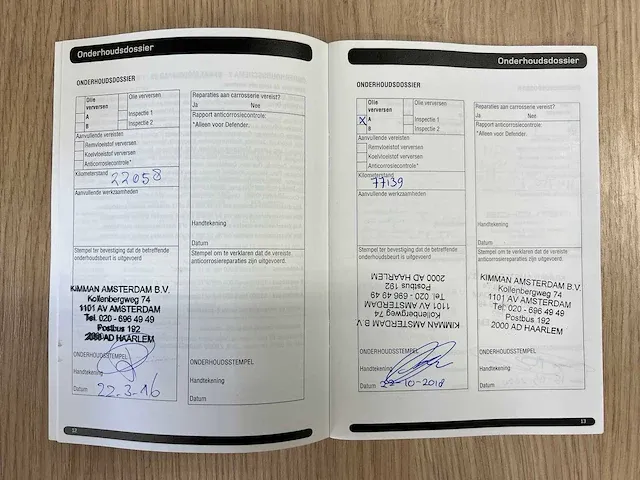 Onderhoudsdossier
ONDERHOUDSDOSSIER
Olie verversen
A
B
Olie verversen
Inspectie 1
Inspectie 2
Aanvullende vereisten
Remvloeistof verversen
Koelvloeistof verversen
Anticorrosiecontrole*
Kilometerstand
22058
Aanvullende werkzaamheden
Stempel ter bevestiging dat de betreffende
onderhoudsbeurt is uitgevoerd
KIMMAN AMSTERDAM B.V.
Kollenbergweg 74
1101 AV AMSTERDAM
Tel. 020 - 696 49 49
Postbus 192
2000 AD HAARLEM
ONDERHOUDSSTEMPEL
Handtekening
Datum 22-3-16
Reparaties aan carrosserie vereist?
Ja Nee
Rapport anticorrosiecontrole:
*Alleen voor Defender.
Handtekening
Datum
Stempel om te verklaren dat de vereiste
anticorrosiereparaties zijn uitgevoerd.
ONDERHOUDSSTEMPEL
Handtekening
Datum
12
Onderhoudsdossier
ONDERHOUDSDOSSIER
Olie
verversen
X A
B
Olie verversen
Inspectie 1
Inspectie 2
Aanvullende vereisten
Remvloeistof verversen
Koelvloeistof verversen
Anticorrosiecontrole*
Kilometerstand
77139
Aanvullende werkzaamheden
Stempel ter bevestiging dat de betreffende
onderhoudsbeurt is uitgevoerd
KIMMAN AMSTERDAM B.V.
Kollenbergweg 74
1101 AV AMSTERDAM
Tel. 020 - 696 49 49
Postbus 192
2000 AD HAARLEM
ONDERHOUDSSTEMPEL
Handtekening
Datum 22-10-2018
Reparaties aan carrosserie vereist?
Ja Nee
Rapport anticorrosiecontrole:
*Alleen voor Defender.
Handtekening
Datum
Stempel om te verklaren dat de vereiste
anticorrosiereparaties zijn uitgevoerd.
KIMMAN AMSTERDAM B.V.
Kollenbergweg 74
1101 AV AMSTERDAM
Tel. 020 - 696 49 49
Postbus 192
2000 AD HAARLEM
ONDERHOUDSSTEMPEL
Handtekening
Datum
13